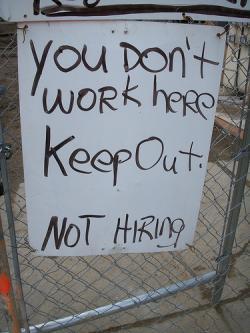 YOU DON'T
WORK here
Keep Out.
NOT HIRING